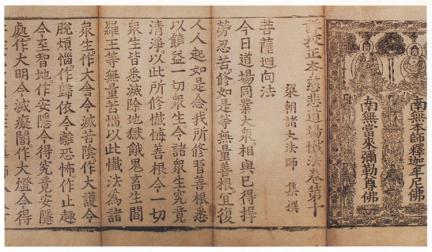 南無本師釋迦牟尼佛
南無當來彌勒尊佛
詳挍正本慈悲道場懺法卷第十
梁朝諸大法師 集撰
菩薩迴向法
今日道場同業大衆相與已得捍
勞忍苦修如是等無量善根宜復
人人起如是念我所修習善根悉
以饒益一切衆生令諸衆生究竟
清淨以此所修懺悔善根令一切
衆生皆悉滅除地獄餓鬼畜生閻
羅王等無量苦惱以此懺法為諸
衆生作大舍令滅苦陰作大護令
脫煩惱作歸依令離恐怖作止趣
令至智地作安隱令得究竟安隱
處作大明令滅癡闇作大燈令得